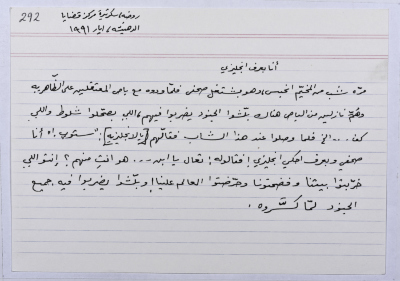 292
روضه / سكرتيرة مركز قضايا
الدهيشه / ايار ١٩٩١
أنا بعرف انجليزي
مره شب من المخيم انحبس، وهو بيشتغل صحفي فلما ودوه مع باص المعتقلين على الظاهريه
وهمّ نازلين من الباص هناك بلّشوا الجنود يضربوا فيهم، اللي بعملوا شلوط واللي
كف... الخ فلما وصلوا عند هذا الشاب فقالّهم (بالانجليزيه) "ستوب، أنا
صحفي وبعرف احكي انجليزي! فقالوله: تعال يا ابن... هو انت منهم؟ إنتو اللي
خرّبتوا بيتنا وفضحتونا وحرّضتوا العالم علينا! وبلّشوا يضربوا فيه جميع
الجنود لمّا كسّروه.